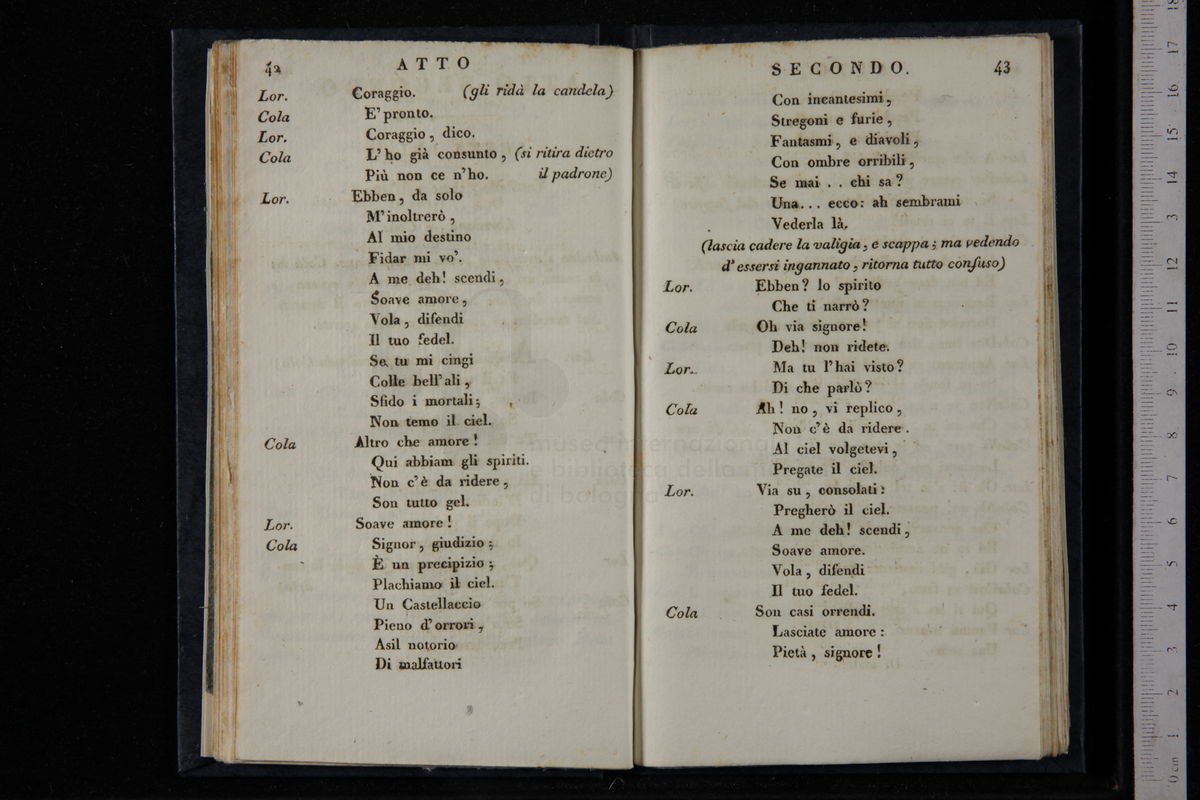 42 ATTO
Lor. Coraggio. (gli ridà la candela)
Cola E' pronto.
Lor. Coraggio, dico.
Cola L' ho già consunto, (si ritira dietro
Più non ce n'ho. il padrone)
Lor. Ebben, da solo
M' inoltrerò,
Al mio destino
Fidar mi vo'.
A me deh! scendi,
Soave amore,
Vola, difendi
Il tuo fedel.
Se tu mi cingi
Colle bell' ali,
Sfido i mortali;
Non temo il ciel.
Cola Altro che amore!
Qui abbiam gli spiriti.
Non c' è da ridere,
Son tutto gel.
Lor. Soave amore!
Cola Signor, giudizio;
È un precipizio;
Plachiamo il ciel.
Un Castellaccio
Pieno d' orrori,
Asil notorio
Di malfattori
SECONDO. 43
Con incantesimi,
Stregoni e furie,
Fantasmi, e diavoli,
Con ombre orribili,
Se mai . . chi sa?
Una... ecco: ah sembrami
Vederla là.
(lascia cadere la valigia, e scappa; ma vedendo
d' essersi ingannato, ritorna tutto confuso)
Lor. Ebben? lo spirito
Che ti narrò?
Cola Oh via signore!
Deh! non ridete.
Lor. Ma tu l'hai visto?
Di che parlò?
Cola Ah! no, vi replico,
Non c' è da ridere.
Al ciel volgetevi,
Pregate il ciel.
Lor. Via su, consolati:
Pregherò il ciel.
A me deh! scendi,
Soave amore.
Vola, difendi
Il tuo fedel.
Cola Son casi orrendi.
Lasciate amore:
Pietà, signore!
museo internazionale
e biblioteca della
di bologna
0 cm 1 2 3 4 5 6 7 8 9 10 11 12 13 14 15 16 17 18